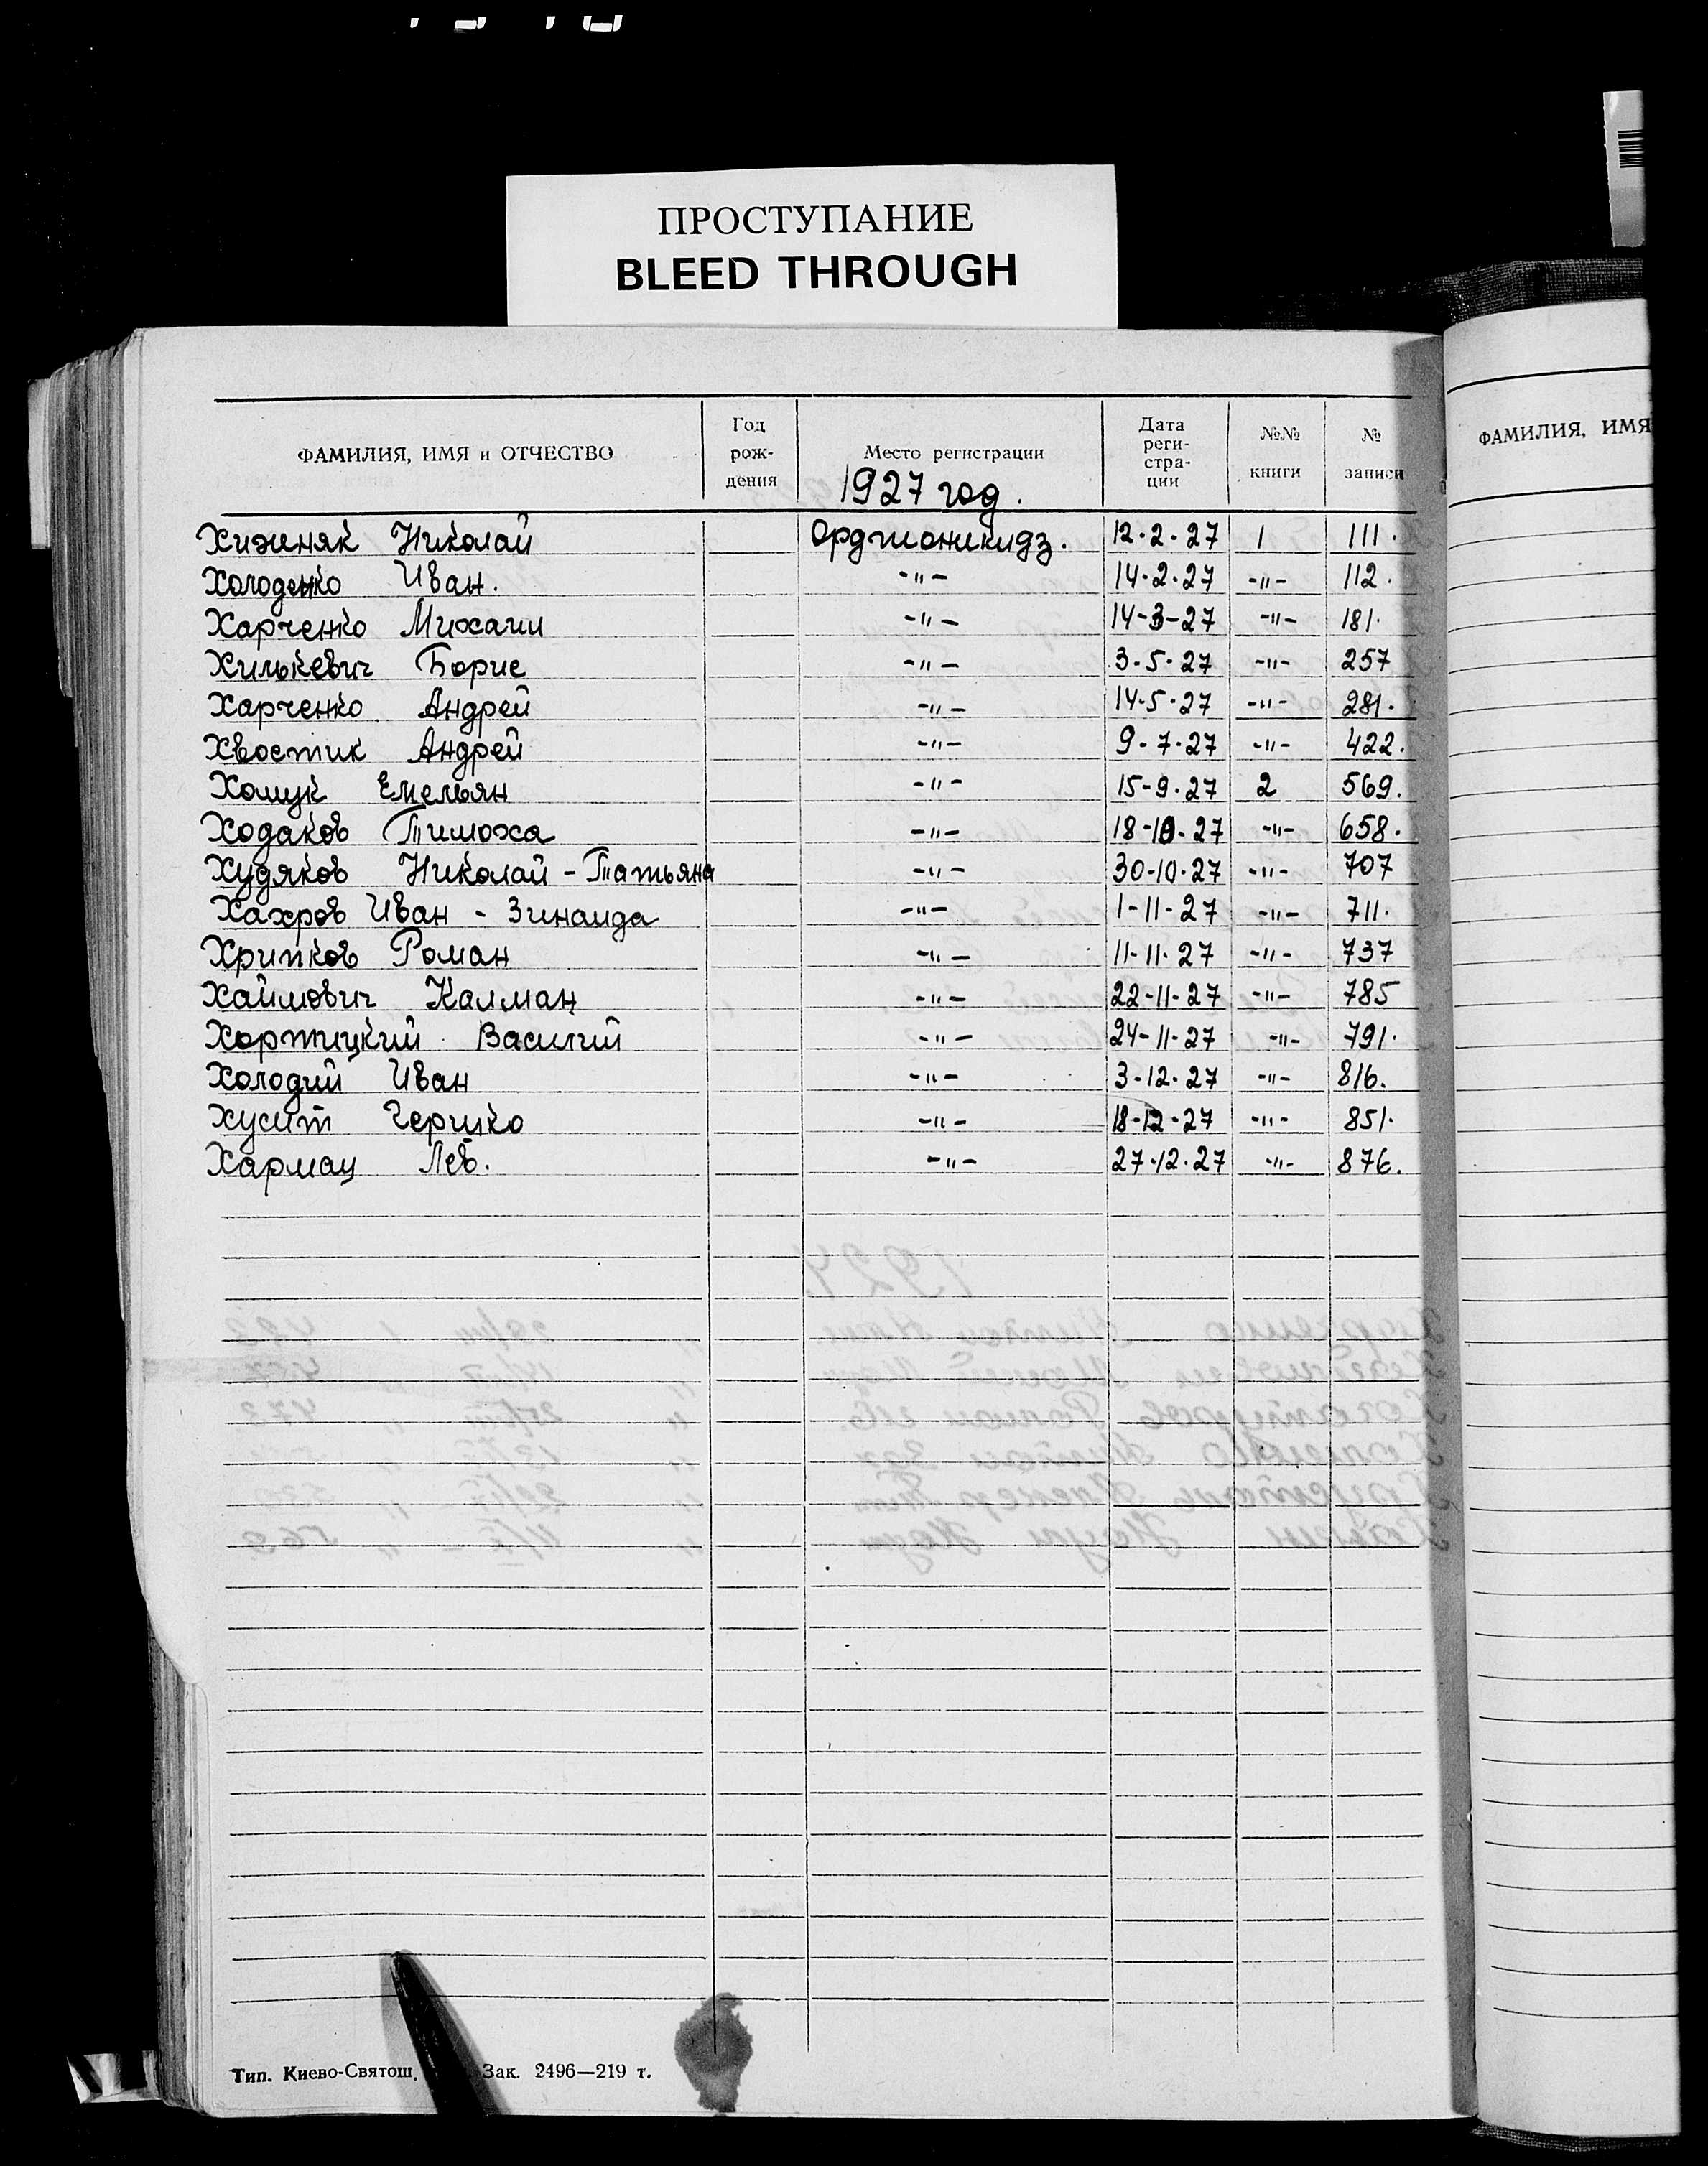 ПРОСТУПАНИЕ
BLEED THROUGH
ФАМИЛИЯ, ИМЯ и ОТЧЕСТВО Год рож- дения Место регистрации Дата реги- стра- ции №№ книги № записи
ФАМИЛИЯ, ИМЯ
1927 год.
Хижняк Николай Орджоникидз. 12-2-27 1 111.
Холоденко Иван. -"- 14-2-27 -"- 112.
Харченко Михаил -"- 14-3-27 -"- 181.
Хилькевич Борис -"- 3-5-27 -"- 257
Харченко Андрей -"- 14-5-27 -"- 281.
Хвостик Андрей -"- 9-7-27 -"- 422.
Хомук Емельян -"- 15-9-27 2 569.
Ходаков Тимоха -"- 18-10-27 -"- 658.
Худяков Николай - Татьяна -"- 30-10-27 -"- 707
Хахров Иван - Зинаида -"- 1-11-27 -"- 711.
Хрипков Роман -"- 11-11-27 -"- 737
Хаймович Калман -"- 22-11-27 -"- 785
Василий -"- 24-11-27 -"- 791.
Холодий Иван -"- 3-12-27 -"- 816.
Хусит Гершко -"- 18-12-27 -"- 851.
Хармац Лев. -"- 27-12-27 -"- 876.
Тип. Киево-Святош. Зак. 2496—219 т.